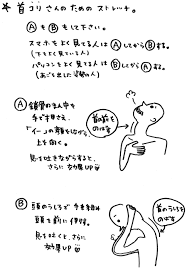 ＊首コリさんのためのストレッチ。
ⒶもⒷもして下さい。
スマホをよく見てる人はⒶしてからⒷする。
(下をよく見ている人)
パソコンをよく見てる人はⒷしてからⒶする。
(あごを出した姿勢の人)
Ⓐ
鎖骨の真ん中を
手で押さえ、
「イー」の顔をしながら
上を向く。
息を吐きながらすると、
さらに効果UP
首の前を
のばす
Ⓑ
頭のうしろで手を組み
頭を前に倒す。
息を吐くと、さらに
効果UP
首のうしろを
のばす